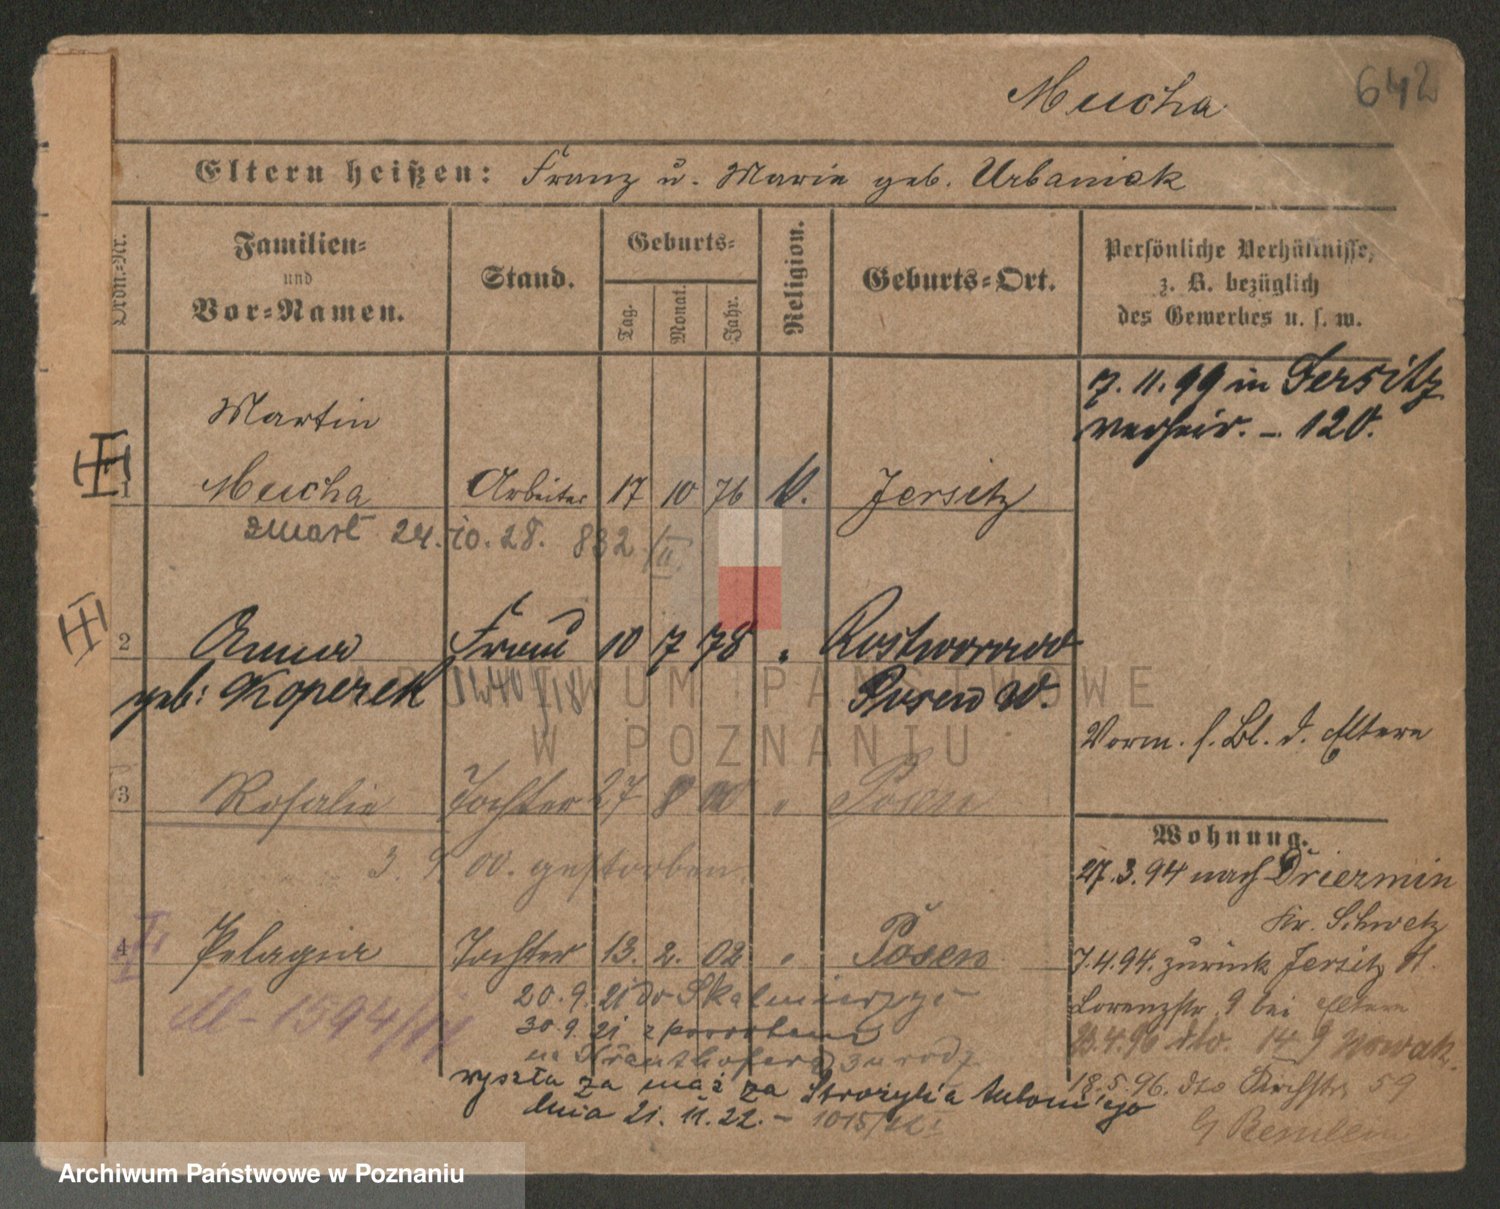 Mucha
642
Eltern heißen: Franz u. Marie geb. Urbaniak
Ordn.-Nr.
Familien-
und
Vor-Namen.
Stand.
Geburts-
Tag.
Monat.
Jahr.
Religion.
Geburts-Ort.
Persönliche Verhältnisse,
z. B. bezüglich
des Gewerbes u. s. w.
7. 11. 99 in Jersitz
verheir. - 120.
Martin
1 Mucha Arbeiter 17 10 76 k. Jersitz
zmarł 24. 10. 28. 832 / II.
2 Anna Frau 10 7 78 " Rostworowo
geb: Koperek Posen W.
Vorm. s. Bl. d. Eltern
3 Rosalie Tochter 27 8 00 " Posen
3. 9. 00. gestorben
Wohnung.
27. 3. 94 nach Driezmin
Kr. Schwetz
4 Pelagia Tochter 13. 2. 02 " Posen
7.4.94. zurück Jersitz
Lorenzstr. 9 bei Eltern
20. 9. 21 do Skalmierzyc
M-1594/
30. 9. 21 z powrotem
23.4.96 dto. 14 Nowak.
na
zu rodz.
18. 5. 96. dto Kirchstr. 59
wyszła za mąż za
dnia 21. 11. 22. - 1015/
ARCHIWUM PAŃSTWOWE
W POZNANIU
Archiwum Państwowe w Poznaniu